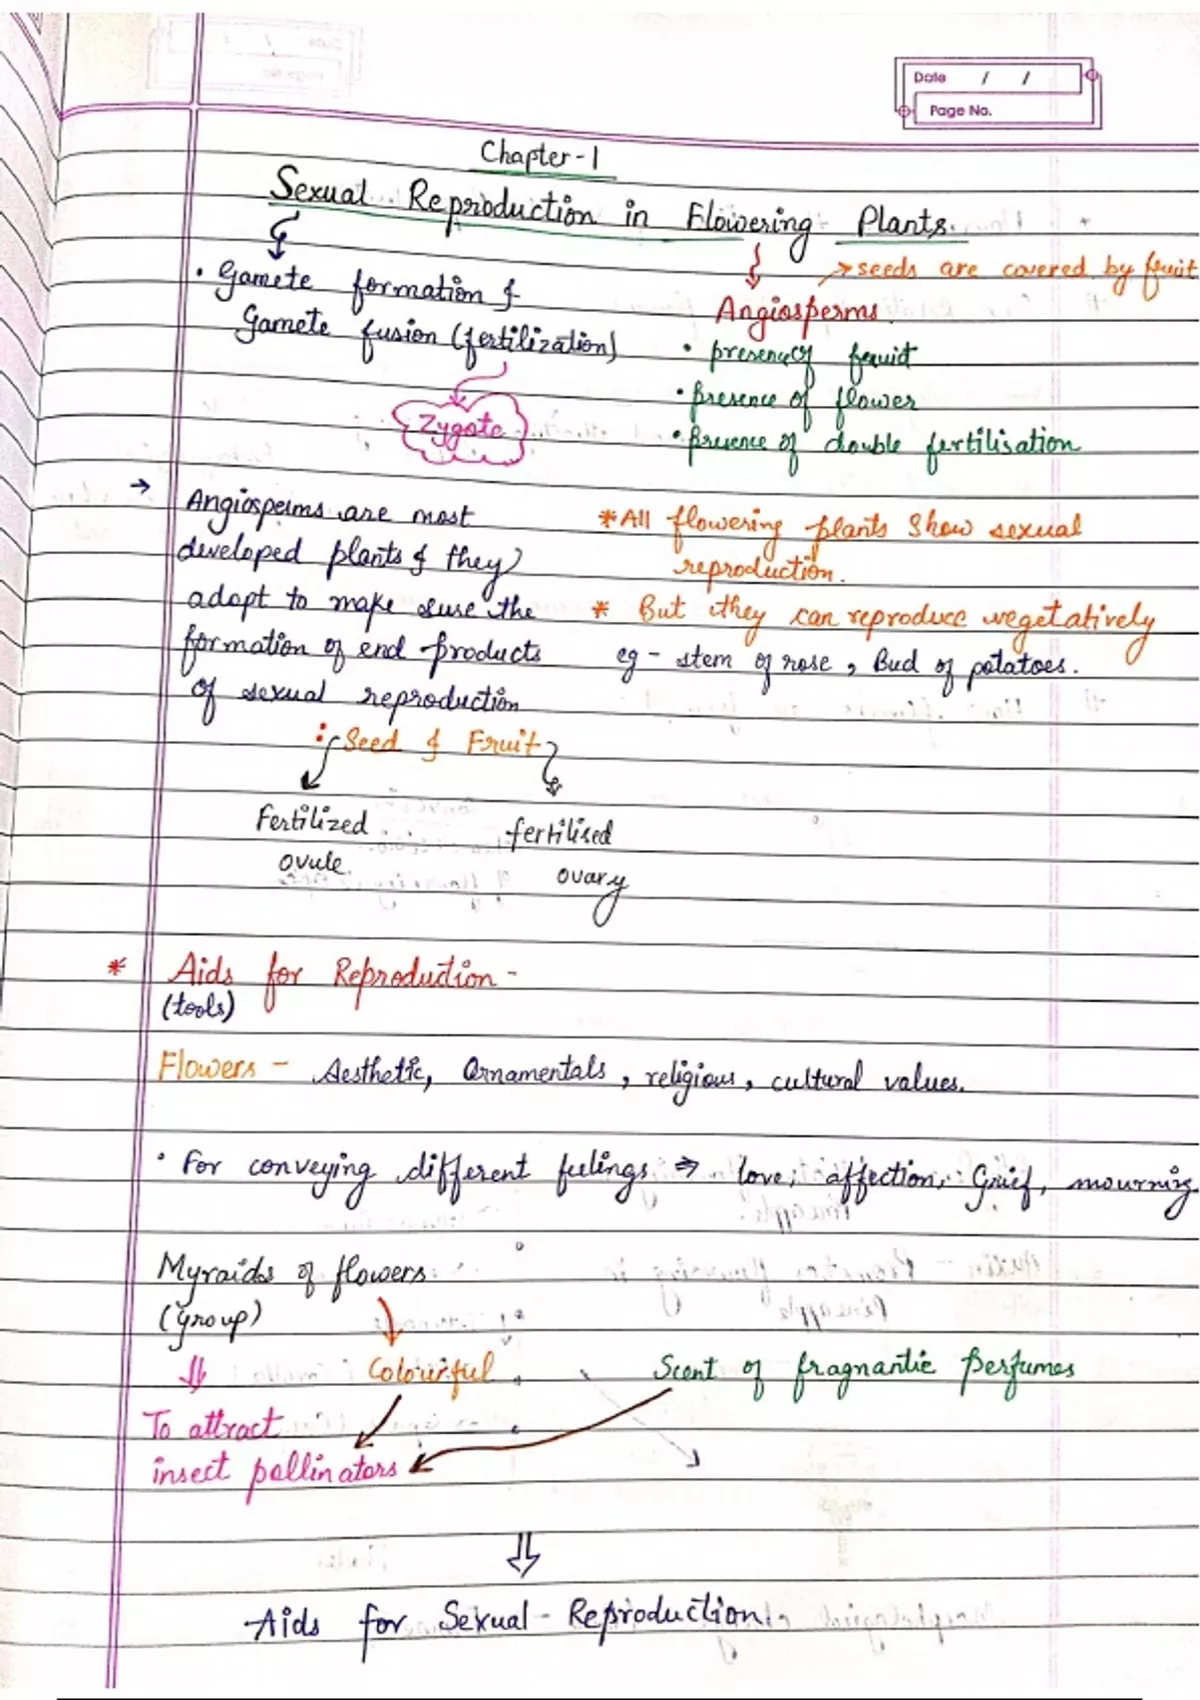 Date / /
Page No.
Chapter-1
Sexual Reproduction in Flowering Plants.
→ seeds are covered by fruit
• Gamete formation &
Gamete fusion (fertilization)
Zygote
Angiosperms
• presence of fruit
• Presence of flower
• Presence of double fertilisation
→ Angiosperms are most
developed plants & they
adapt to make sure the
formation of end products
of sexual reproduction
* All flowering plants show sexual
reproduction.
* But they can reproduce vegetatively
eg - stem of rose, Bud of potatoes.
: Seed & Fruit
Fertilized
ovule.
fertilised
ovary
* Aids for Reproduction -
(tools)
Flowers - Aesthetic, Ornamentals, religious, cultural values.
• For conveying different feelings ⇒ love, affection, Grief, mourning
Myraids of flowers
(group)
⇓
Colourful
Scent of fragnantic perfumes
To attract
insect pollinators
⇓
Aids for Sexual - Reproduction